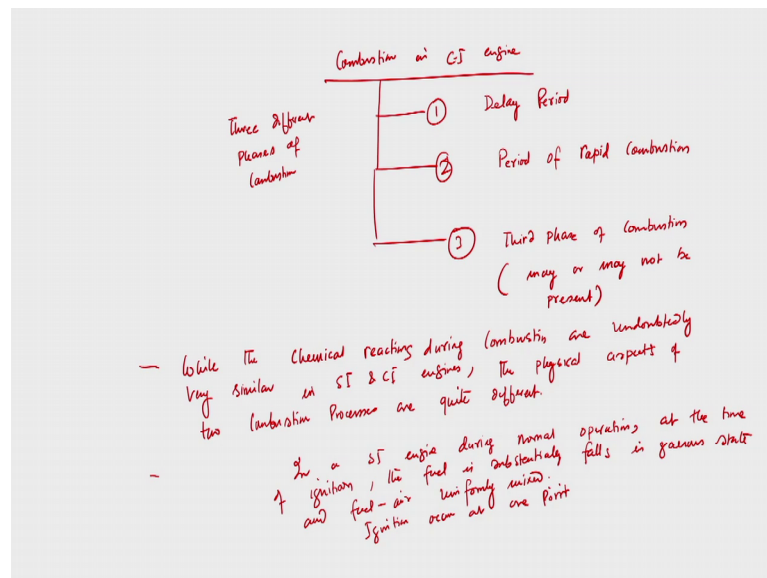 Combustion in CI engine
Three different
phases of
Combustion
1 Delay Period
2 Period of rapid Combustion
3 Third phase of Combustion
( may or may not be
present)
— While the Chemical reactions during Combustion are undoubtedly
very similar in SI & CI engines, the physical aspects of
two Combustion Processes are quite different.
— In a SI engine during normal operation, at the time
of ignition, the fuel is substantially falls in gaseous state
and fuel-air uniformly mixed.
Ignition occur at one Point